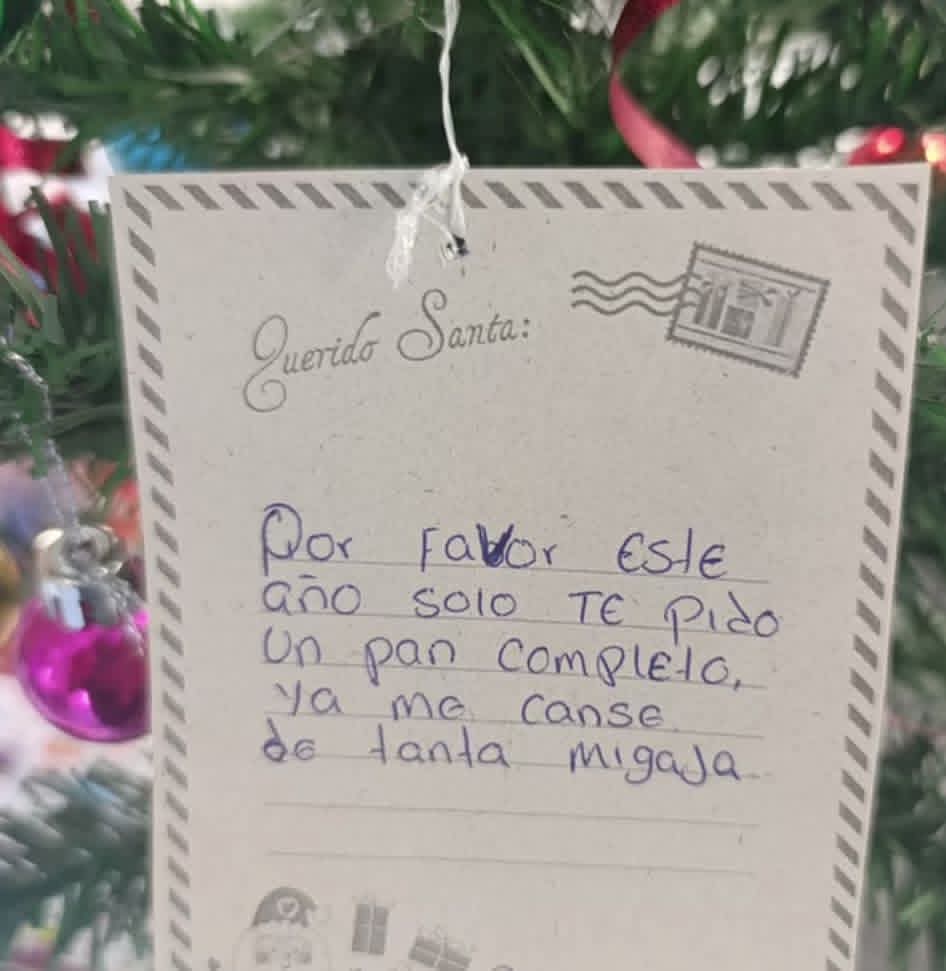 Querido Santa:
Por Favor Este
año solo TE pido
un pan completo,
ya me canse
de tanta migaja